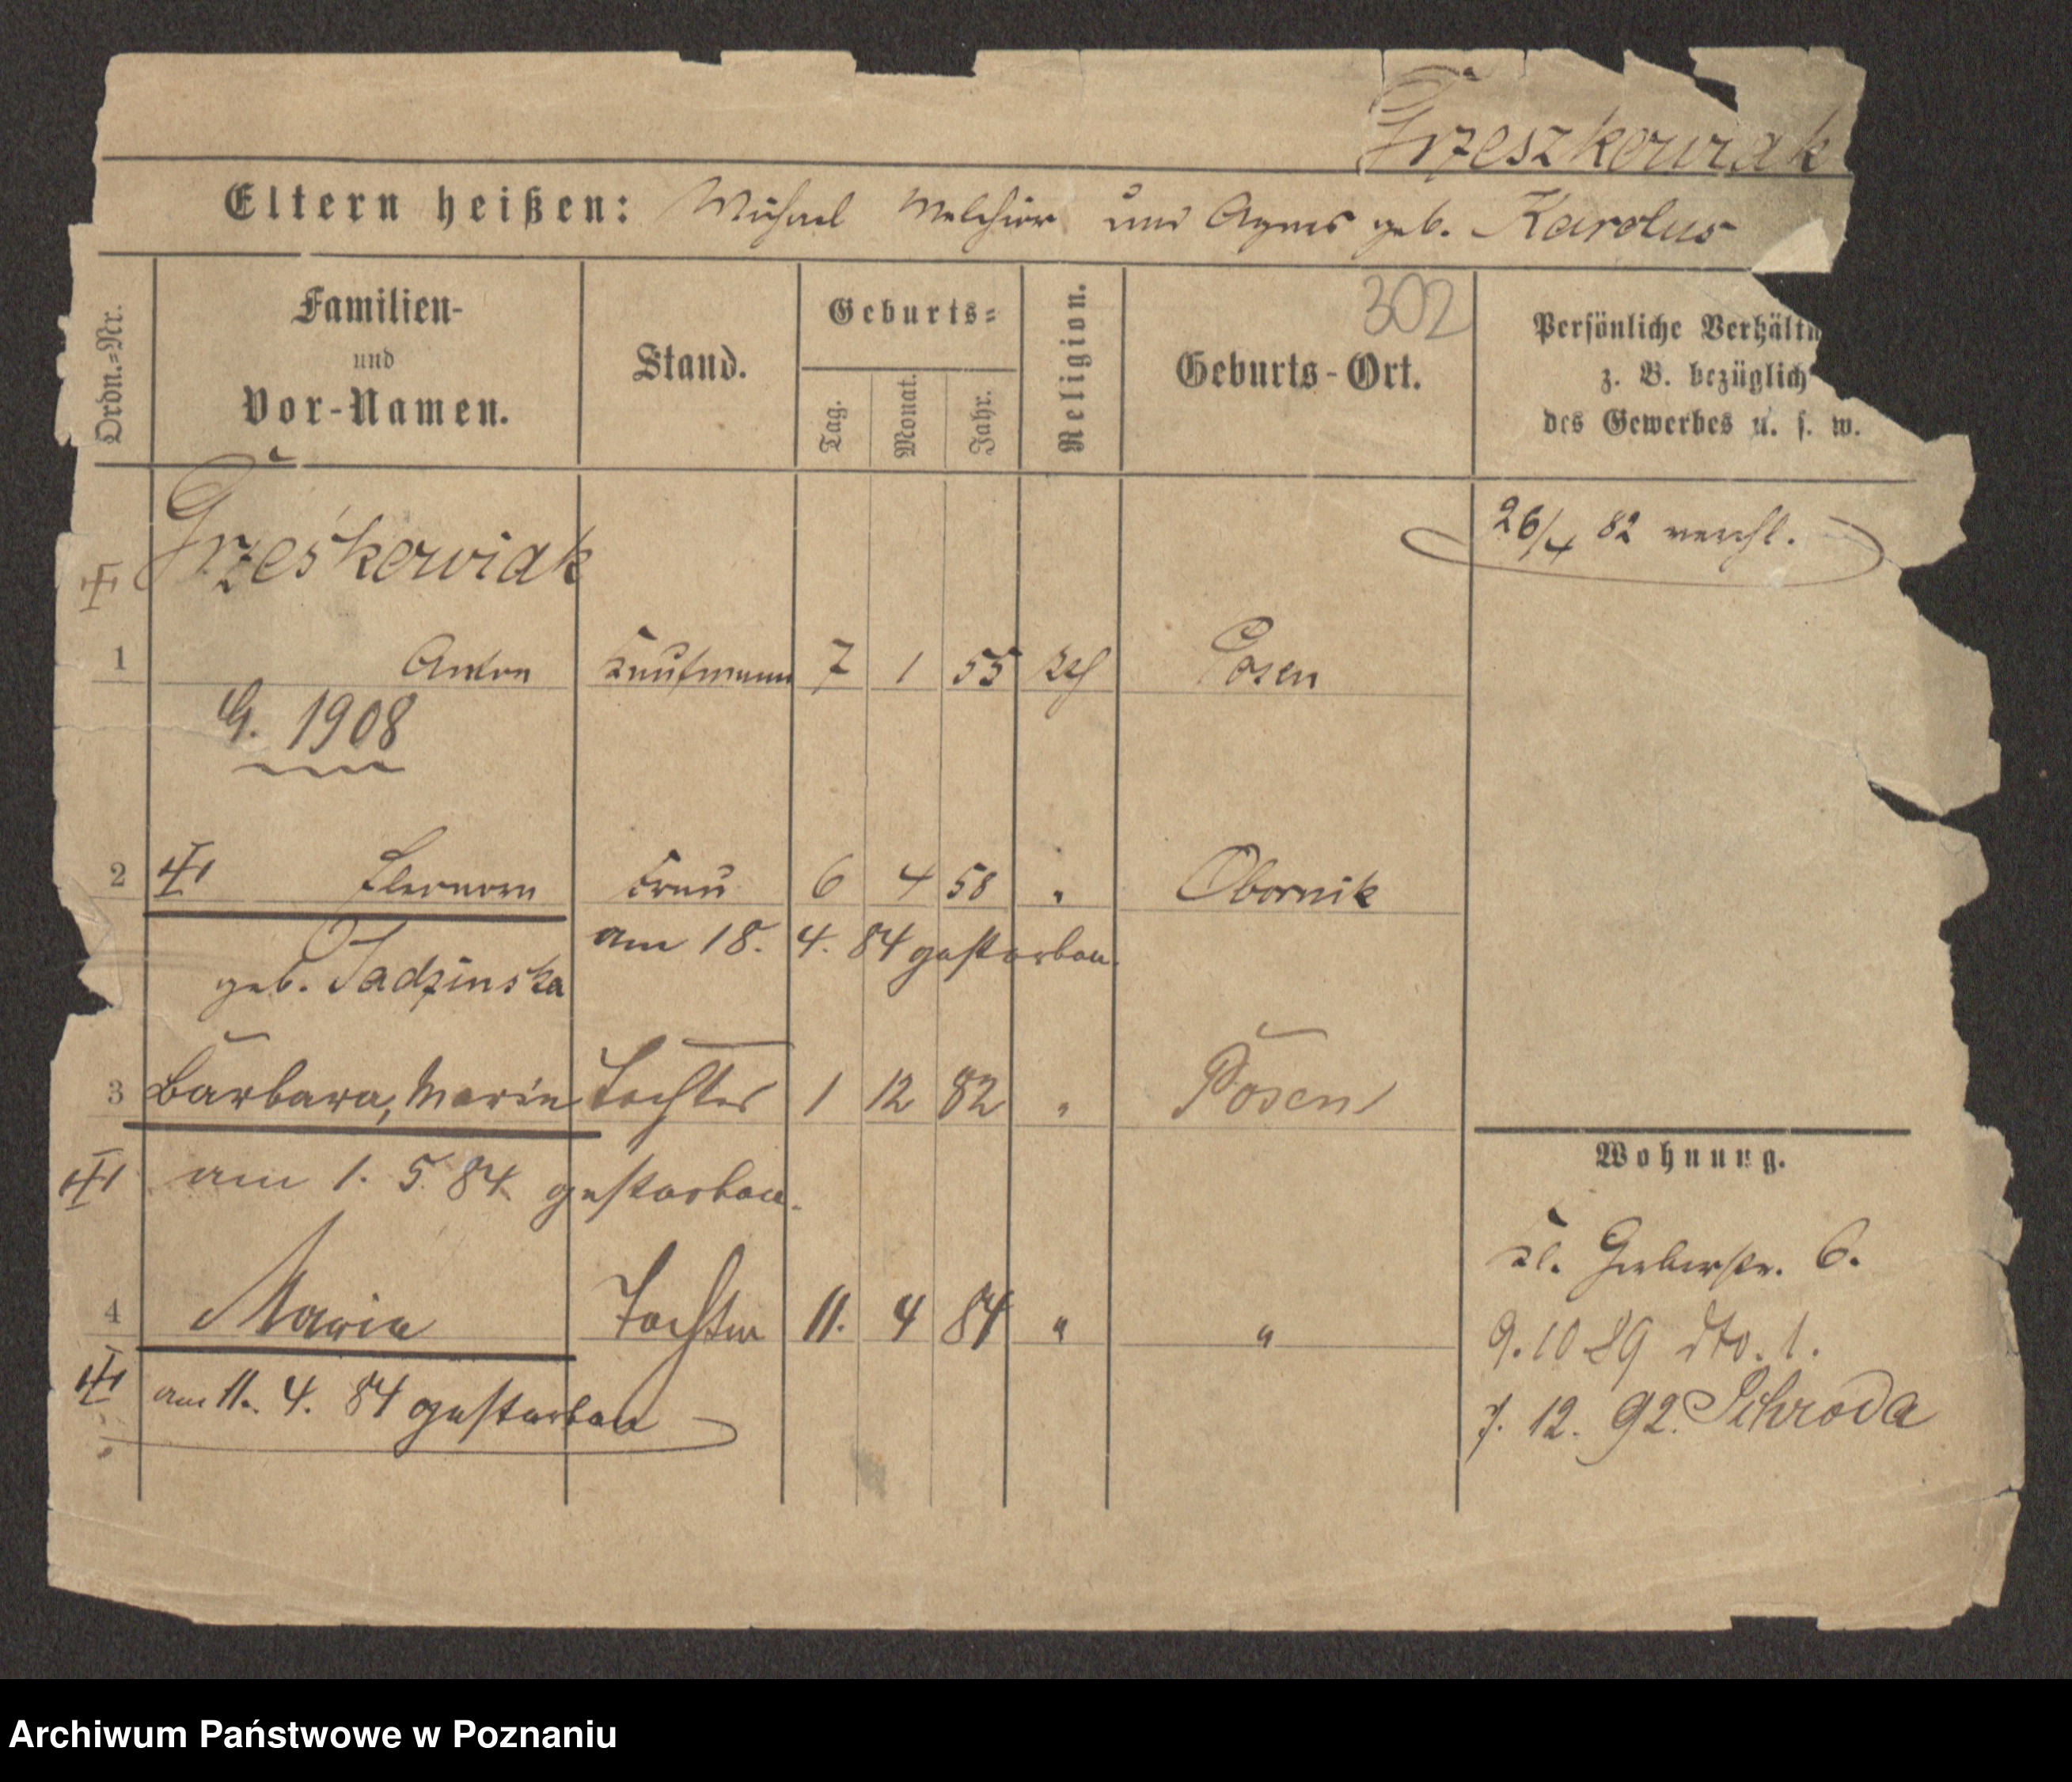 Grzeszkowiak
Eltern heißen: Michael Melchior und Agnes geb. Karolus
302
Ordn.=Nr.
Familien-
und
Vor-Namen.
Stand.
Geburts=
Tag. Monat. Jahr.
Religion.
Geburts-Ort.
Persönliche Verhältn
z. B. bezüglich
des Gewerbes u. s. w.
Grześkowiak
26/4 82 verehl.
1 Anton Kaufmann 7 1 55 kth Posen
G. 1908
2 Eleonora Frau 6 4 58 " Obornik
am 18. 4. 84 gestorben.
geb. Jadzinska
3 Barbara, Marie Tochter 1 12 82 " Posen
am 1. 5. 84 gestorben.
4 Maria Tochter 11. 4 84 " "
am 11. 4. 84 gestorben
Wohnung.
Kl. Gerberstr. 6.
9. 10 89 dto. 1.
7. 12. 92. Schroda
Archiwum Państwowe w Poznaniu